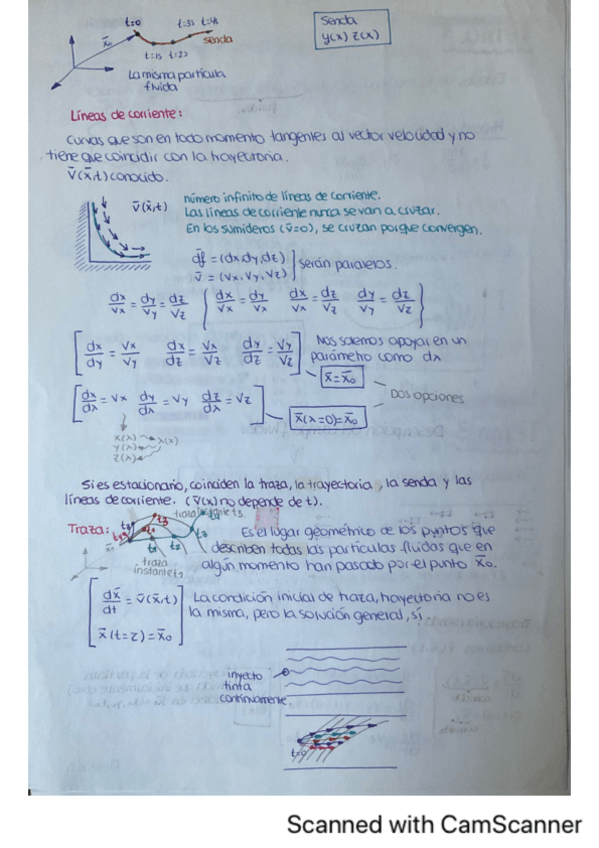 t=0 t=3s t=4s
x̄₀
t=1s t=2s
senda
La misma partícula
fluida
Senda
y(x) z(x)
Líneas de corriente:
Curvas que son en todo momento tangentes al vector velocidad y no
tiene que coincidir con la trayectoria.
v̄(x̄,t) conocido.
v̄(x̄,t)
número infinito de líneas de corriente.
Las líneas de corriente nunca se van a cruzar.
En los sumideros (v̄=0), se cruzan porque convergen.
dl̄ = (dx,dy,dz)
v̄ = (vx,vy,vz)
serán paralelos.
dx/vx = dy/vy = dz/vz { dx/vx = dy/vx dx/vx = dz/vz dy/vy = dz/vz }
[ dx/dy = vx/vy dx/dz = vx/vz dy/dz = vy/vz ] Nos solemos apoyar en un
parámetro como dλ
x̄=x̄₀
[ dx/dλ = vx dy/dλ = vy dz/dλ = vz ]
x̄(λ=0)=x̄₀
Dos opciones
x(λ) λ(x)
y(λ)
z(λ)
Si es estacionario, coinciden la traza, la trayectoria, la senda y las
líneas de corriente. (v̄(x) no depende de t).
Traza:
traza instante t3
traza
instante t2
Es el lugar geométrico de los puntos que
describen todas las partículas fluidas que en
algún momento han pasado por el punto x̄₀.
dx̄/dt = v̄(x̄,t)
x̄(t=τ)=x̄₀
La condición inicial de traza, trayectoria no es
la misma, pero la solución general, sí.
inyecto
tinta
continuamente.
t=0
Scanned with CamScanner